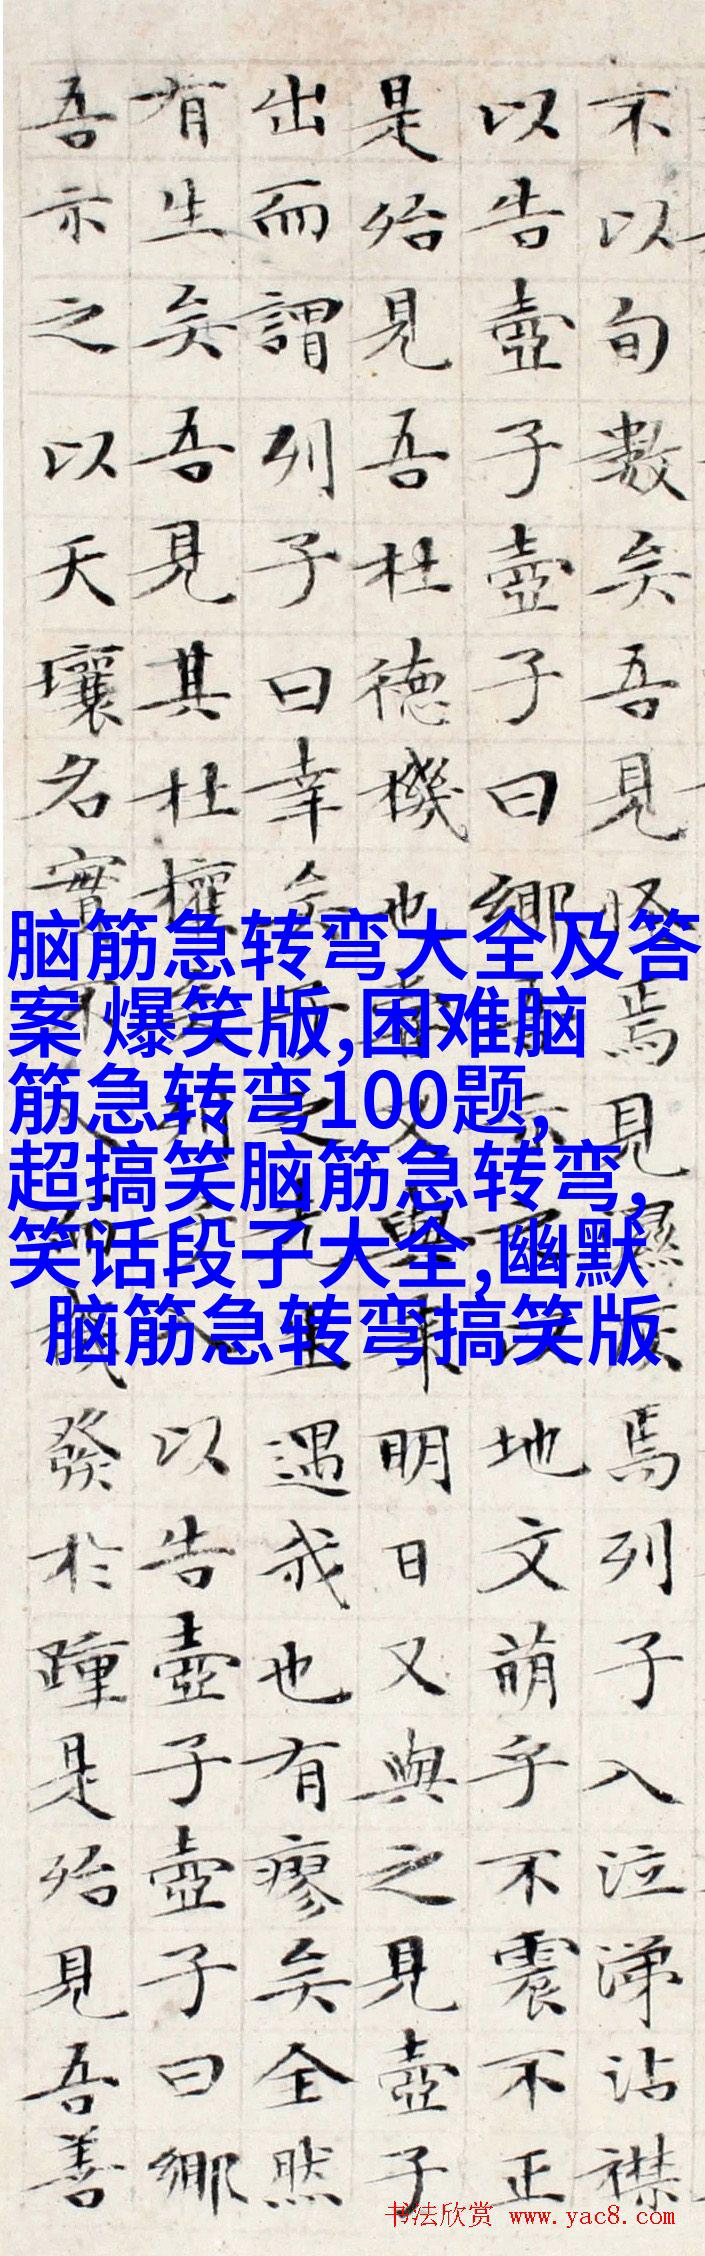 不以旬數矣吾見怪焉見濕灰焉列子入泣涕沾襟
以告壺子壺子曰鄉吾示之以地文萌乎不震不正
是殆見吾杜德機也嘗又與來明日又與之見壺子
出而謂列子曰幸矣子之先生遇我也有瘳矣全然
有生矣吾見其杜權矣列子入以告壺子壺子曰鄉
吾示之以天壤名實不入而機發於踵是殆見吾善
脑筋急转弯大全及答
案 爆笑版,困难脑
筋急转弯100题,
超搞笑脑筋急转弯,
笑话段子大全,幽默
脑筋急转弯搞笑版
书法欣赏 www.yac8.com